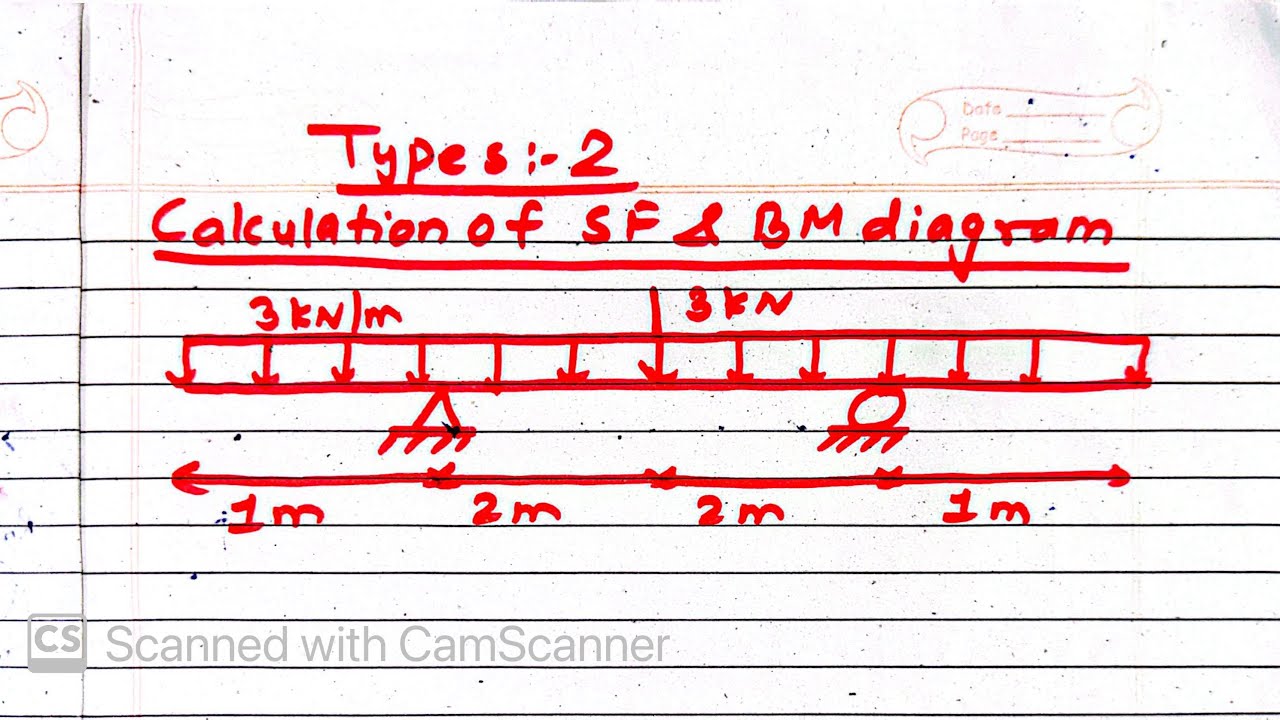 Date
Page
Types:- 2
Calculation of SF & BM diagram
3 kN/m 3 kN
1m 2m 2m 1m
CS Scanned with CamScanner